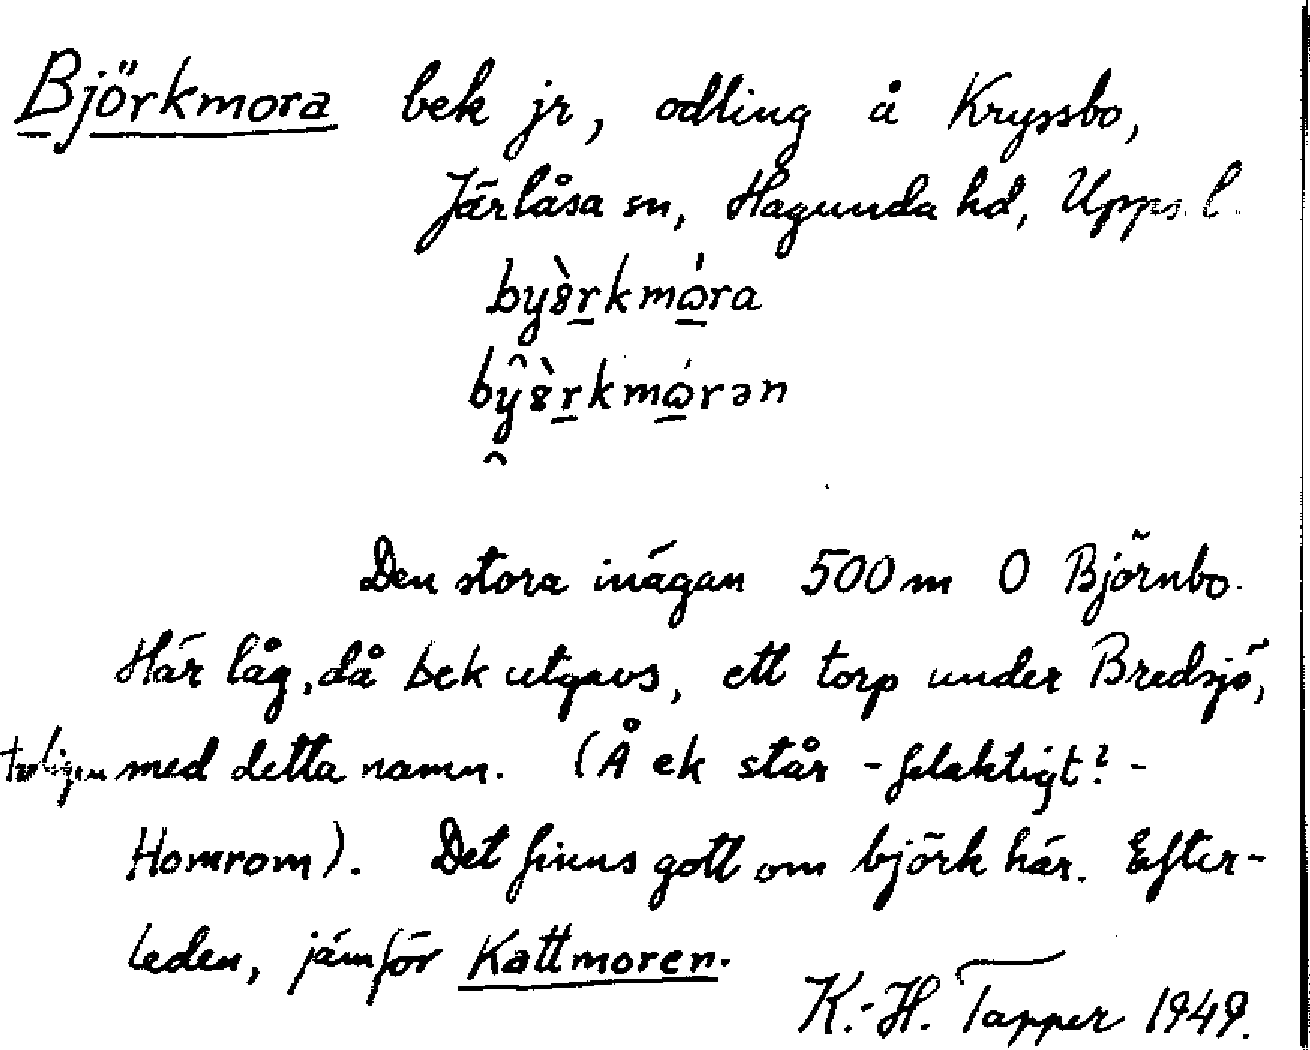 Björkmora bek jr, odling å Kryssbo,
Järlåsa sn, Hagunda hd, Upps. l.
byȣ̀r̲kmώ̲ra
bŷȣ̀r̲kmώ̲rən
Den stora inägan 500 m O Björnbo.
Här låg, då bek utgavs, ett torp under Bredsjö,
troligen med detta namn. (Å ek står - felaktigt? -
Homrom). Det finns gott om björk här. Efter-
leden, jämför Kattmoren.
K.-H. Tapper 1949.